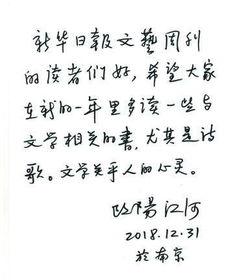 新华日報文藝周刊
的读者们好，希望大家
在新的一年里多读一些与
文学相关的書，尤其是诗
歌。文学关乎人的心灵。
欧陽江河
2018.12.31
於南京